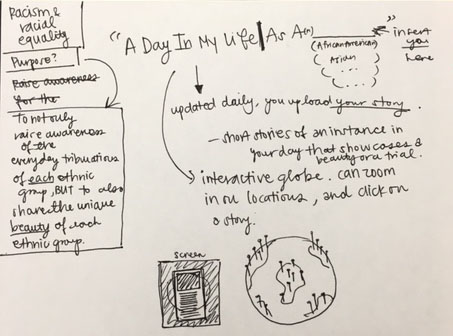 Racism &
racial
equality
Purpose?
Raise awareness
for the
To not only
raise awareness
of the
everyday tribulations
of each ethnic
group, BUT to also
share the unique
beauty of each
ethnic group.
"A Day In My Life As A(n) ______"
(African American)
Asian
...
...
insert
you
here
updated daily, you upload your story.
- short stories of an instance in
your day that showcases a
beauty or a trial.
interactive globe. can zoom
in on locations, and click on
a story.
screen